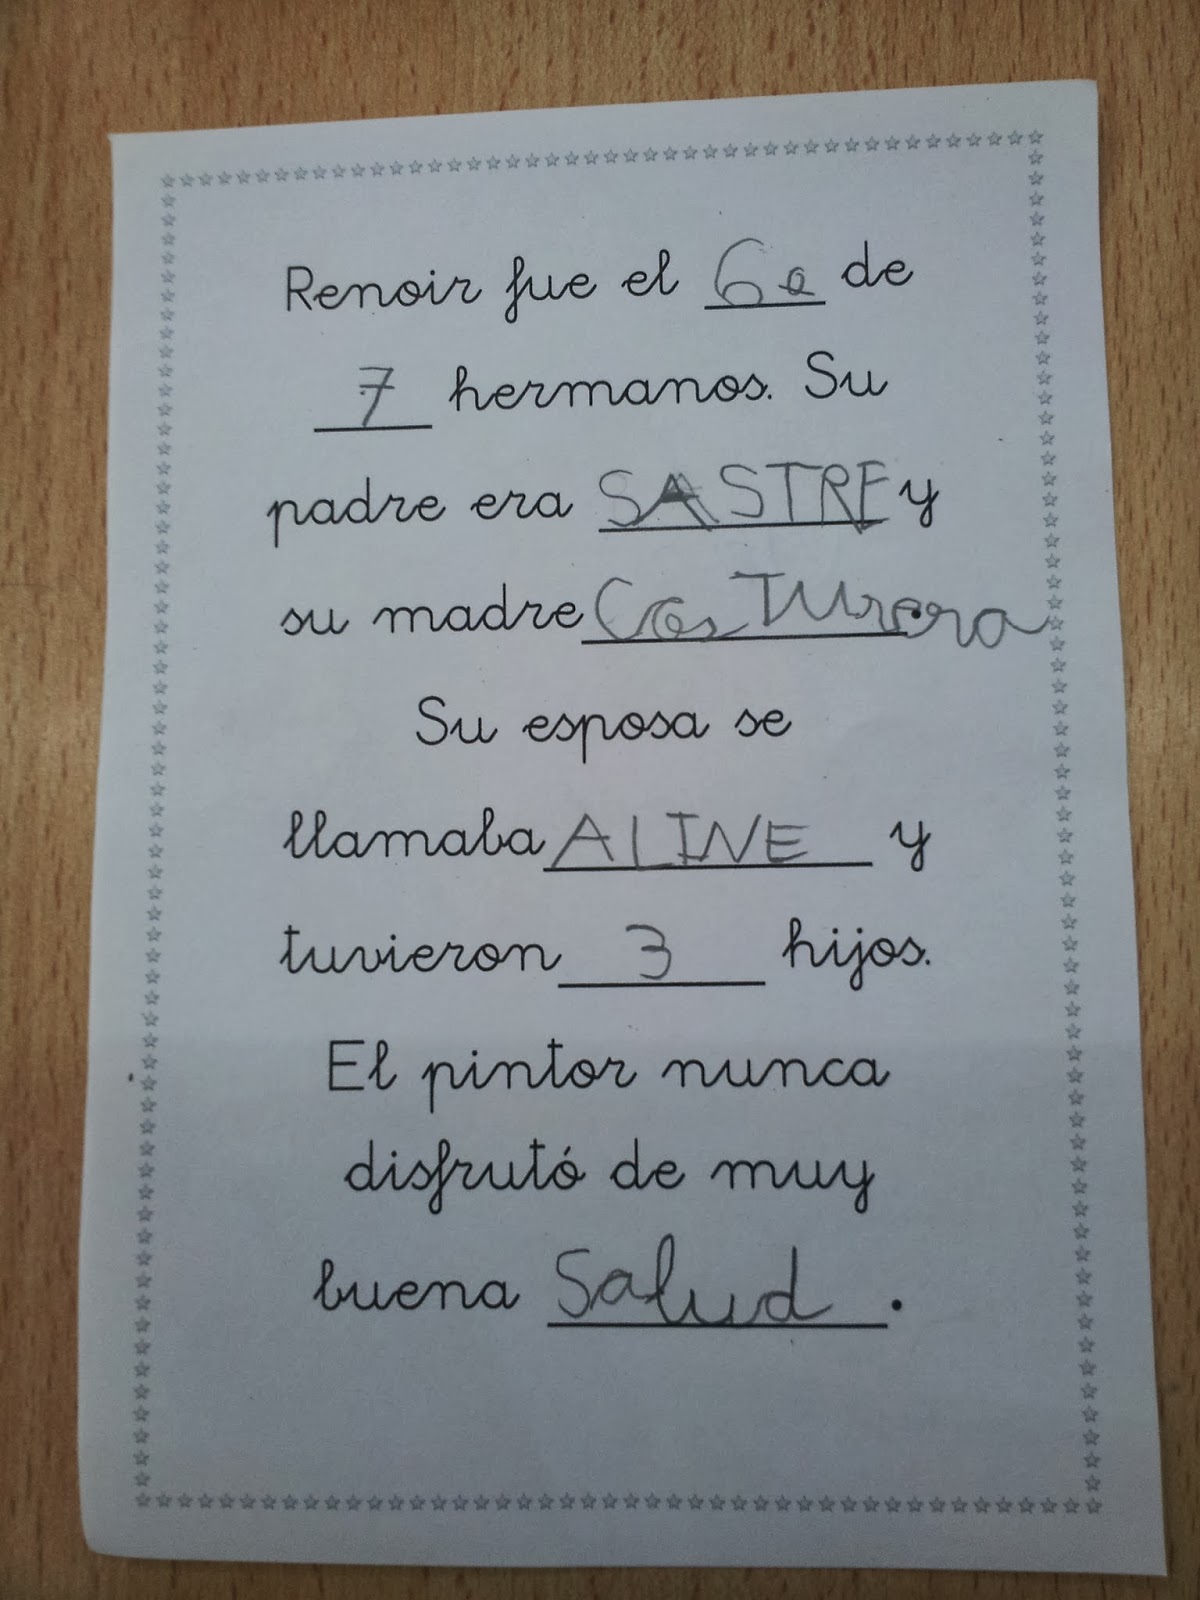 Renoir fue el 6º de
7 hermanos. Su
padre era SASTRE y
su madre CosTUrera.
Su esposa se
llamaba ALINE y
tuvieron 3 hijos.
El pintor nunca
disfrutó de muy
buena Salud.